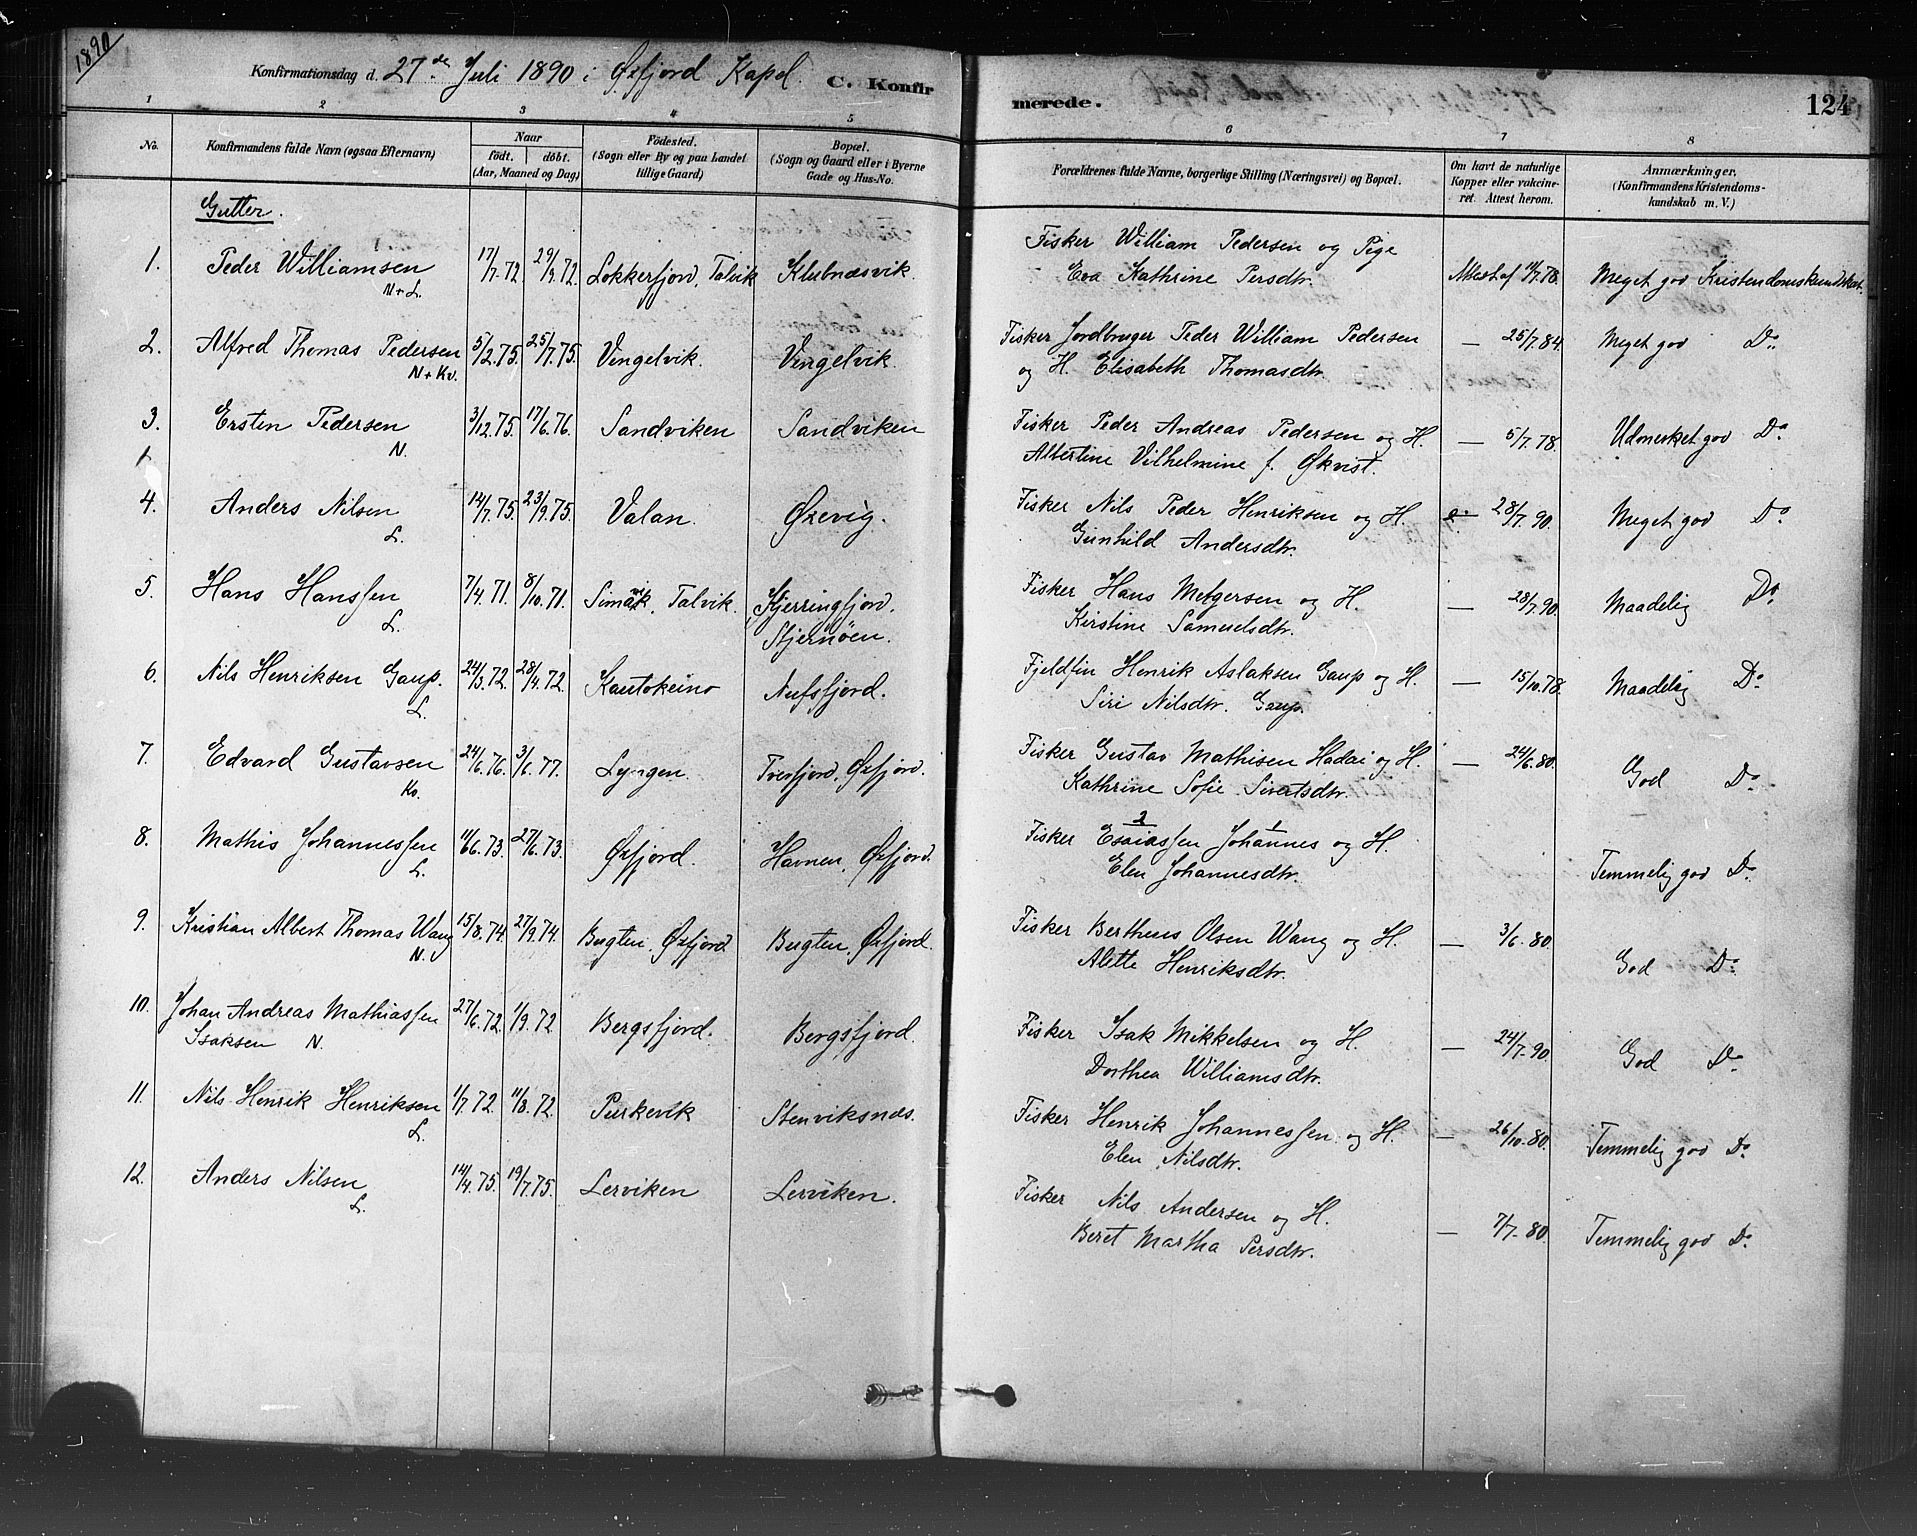 1890
Konfirmationsdag d. 27de Juli 1890 i Øxfjord Kapel. C. Konfirmerede. 124
1 2 3 4 5 6 7 8
No. Konfirmandens fulde Navn (ogsaa Efternavn) Naar født. døbt. (Aar, Maaned og Dag) Födested. (Sogn eller By og paa Landet tillige Gaard) Bopæl. (Sogn og Gaard eller i Byerne Gade og Hus-No. Forældrenes fulde Navne, borgerlige Stilling (Næringsvei) og Bopæl. Om havt de naturlige Kopper eller vakcineret. Attest herom. Anmærkninger. (Konfirmandens Kristendomskundskab m. V.)
Gutter.
1. Peder Williamsen N+L. 17/7.72. 29/9.72. Lokkerfjord, Talvik Klubnæsvik. Fisker William Pedersen og Pige
Eva Kathrine Persdtr. Attest af 11/7.78. Meget god Kristendomskundskab.
2. Alfred Thomas Pedersen N+Kv. 5/2.75. 25/7.75. Vingelvik. Vingelvik. Fisker Jordbruger Peder William Pedersen
og H. Elisabeth Thomasdtr. — 25/7.84. Meget god Do.
3. Ersten Pedersen N. 3/12.75. 17/6.76. Sandviken Sandviken Fisker Peder Andreas Pedersen og H.
Albertine Vilhelmine f. Økvist. — 5/7.78. Udmerket god Do
4. Anders Nilsen L. 14/7.75. 23/9.75. Valan. Øxevig. Fisker Nils Peder Henriksen og H.
Gunhild Andersdtr. — 28/7.90. Meget god Do
5. Hans Hanssen L. 7/4.71. 8/10.71. Talvik. Stjernøen. Fisker Hans Metgersen og H.
Kirstine Samuelsdtr. — 28/7.90. Maadelig Do.
6. Nils Henriksen Gaup. L. 24/3.72. 28/4.72. Kautokeino Nufsfjord. Fjeldfin Henrik Aslaksen Gaup og H.
Siri Nilsdtr. Gaup. — 15/10.78. Maadelig Do.
7. Edvard Gustavsen Kv. 24/6.76. 3/6.77. Lyngen. Tverfjord, Øxfjord. Fisker Gustav Mathisen Hadai og H.
Kathrine Sofie Sivertsdtr. — 24/6.80. God Do.
8. Mathis Johannessen L. 11/6.73. 27/6.73. Øxfjord. Havnen, Øxfjord. Fisker 2 Esaiassen 1 Johannes og H.
Elen Johannesdtr. Temmelig god Do.
9. Kristian Albert Thomas Wang N. 15/8.74. 27/9.74. Bugten, Øxfjord. Bugten, Øxfjord. Fisker Bertheus Olsen Wang og H.
Alette Henriksdtr. — 3/6.80. God Do.
10. Johan Andreas Mathiassen
Isaksen N. 27/6.72. 1/9.72 Bergsfjord. Bergsfjord. Fisker Isak Mikkelsen og H.
Dorthea Williamsdtr. — 24/7.90. God Do.
11. Nils Henrik Henriksen L. 1/7.72. 11/8.72. Purkevik Stenviksnæs. Fisker Henrik Johannessen og H.
Elen Nilsdtr. — 26/10.80. Temmelig god Do.
12. Anders Nilsen L. 14/4.75. 19/7.75. Lerviken Lerviken. Fisker Nils Andersen og H.
Beret Martha Persdtr. — 7/7.80. Temmelig god Do.